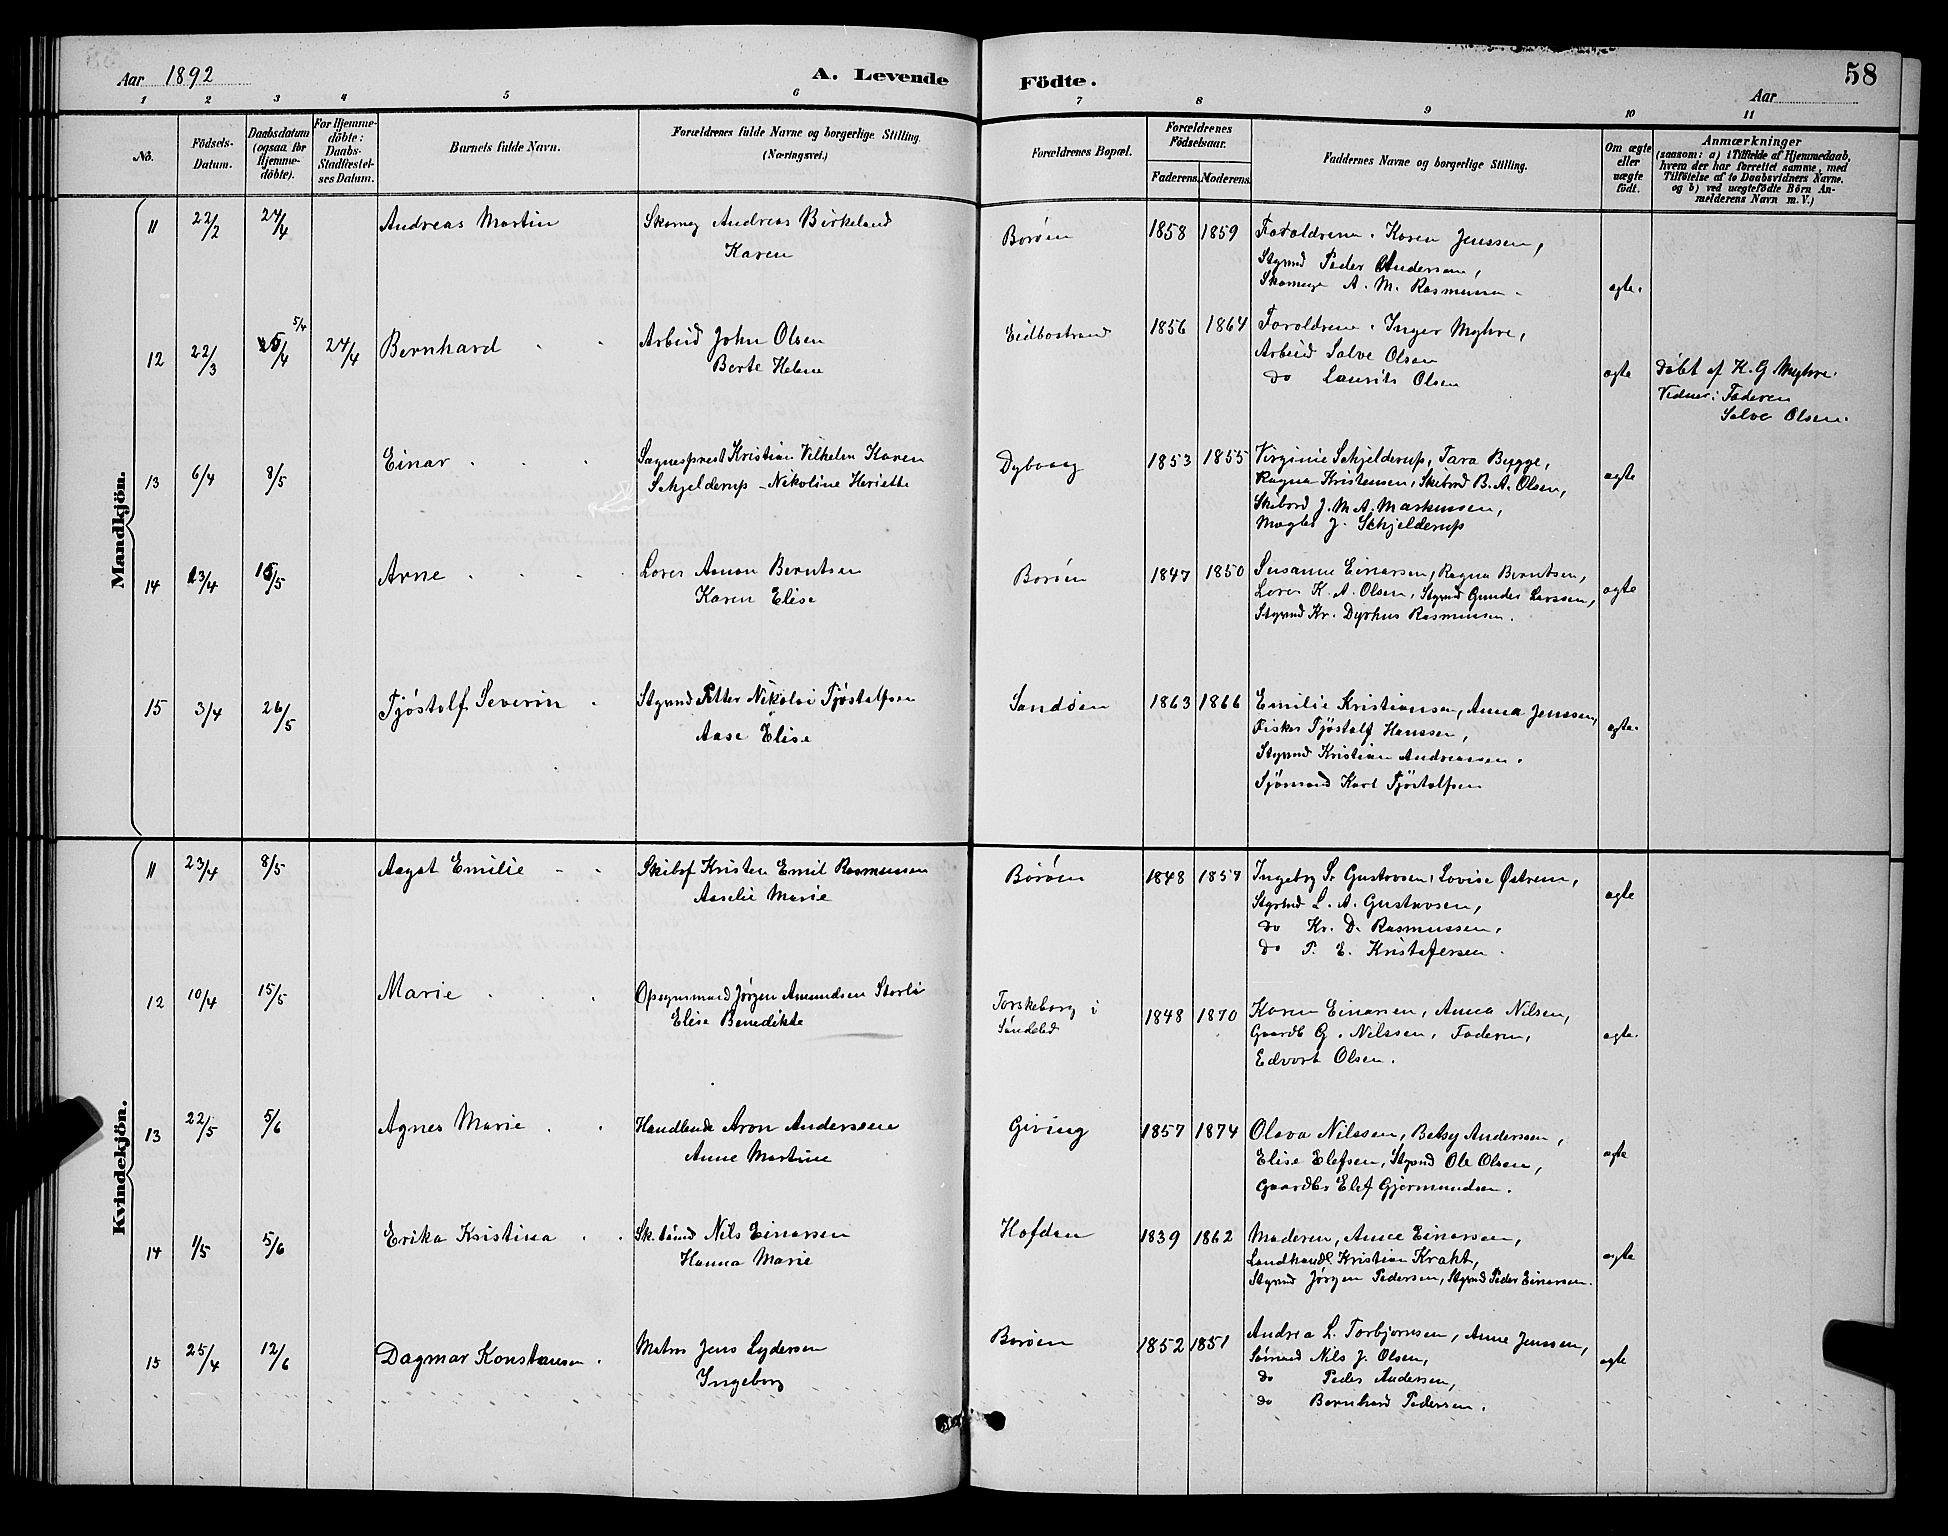 58
Aar 1892
A. Levende Födte.
Aar
1 2 3 4 5 6 7 8 9 10 11
No.
Födsels-Datum.
Daabsdatum (ogsaa for Hjemme-döbte).
For Hjemme-döbte: Daabs-Stadfæstel-ses Datum.
Barnets fulde Navn.
Forældrenes fulde Navne og borgerlige Stilling. (Næringsvei.)
Forældrenes Bopæl.
Forældrenes Födselsaar.
Faderens. Moderens.
Faddernes Navne og borgerlige Stilling.
Om ægte eller uægte födt.
Anmærkninger
(saasom: a) i Tilfælde af Hjemmedaab, hvem der har forrettet samme, med Tilföielse af to Daabsvidners Navne. og b) ved uægtefödte Börn An-melderens Navn m. V.)
Mandkjön.
11 22/2 24/4 Andreas Martin Skomag Andreas Birkeland Borøen 1858 1859 Forældrene, Karen Jenssen,
Karen Stymd Peder Andersen,
Skomag A. M. Rasmussen. ægte.
12 22/3 5/4 24/4 Bernhard Arbeid John Olsen Eidbostrand 1856 1864 Forældrene, Inger Myhre,
Berte Helene Arbeid Salve Olsen
do Laurits Olsen ægte Døbt af K. G Myhre.
Vidner: Faderen
Salve Olsen.
13 6/4 8/5 Einar Sognesprest Kristian Vilhelm Koren Dybvaag 1853 1855 Virginie Schjelderup, Tara Bugge,
Schjelderup - Nikoline Henriette Ragna Kristensen, Skibrd B. A. Olsen, ægte
Skibsrd J. M. A. Markussen,
Mægler J. Schjelderup
14 23/4 15/5 Arne Lover Aanon Berntsen Borøen 1847 1850 Susanne Einarsen, Ragna Berntsen,
Karen Elise Lover K. A. Olsen, Stymd Gunder Larssen, ægte
Stymd Kr. Dyrhus Rasmussen.
15 3/4 26/5 Tjøstolf Severin Stymd Petter Nikolai Tjøstolfsen Sandøen 1863 1866 Emilie Kristiansen, Anna Jenssen,
Aase Elise Fisker Tjøstolf Hanssen, ægte.
Stymd Kristian Andreassen.
Sjømand Karl Tjøstolfsen
Kvindekjön.
11 23/4 8/5 Aagot Emilie Skibsf Kristen Emil Rasmussen Borøen 1848 1857 Ingeborg S. Gustavsen, Lovise Østrem,
Amelie Marie Stymd L. A. Gustavsen, ægte
do Kr. D. Rasmussen,
do P. E. Kristofersen.
12 10/4 15/5 Marie Opsynsmand Jørgen Amundsen Storlø Torskeborg i 1848 1870 Karen Einarsen, Anna Nilsen,
Elise Benedikte Søndeled Gaardb G. Nilssen, Faderen, ægte.
Edvart Olsen.
13 22/5 5/6 Agnes Marie Handlende Aron Anderssen Giving 1857 1874 Olava Nilssen, Betsy Anderssen,
Anne Martine Elise Elefsen, Stymd Ole Olsen, ægte
Gaardbr Elef Gjermundsen.
14 1/5 5/6 Erika Kristina Sk.tømmd Nils Einarsen Hofden 1839 1862 Moderen, Anne Einarsen,
Hanna Marie Landhandl Kristian Krakt, ægte
Stymd Jørgen Pedersen, Stymd Peder Einarsen.
15 25/4 12/6 Dagmar Konstanse Matros Jens Lydersen Borøen 1852 1851 Andrea L. Torbjørnsen, Anne Jenssen,
Ingeborg Sømand Nils J. Olsen, ægte
do Peder Andersen,
do Bernhard Pedersen.